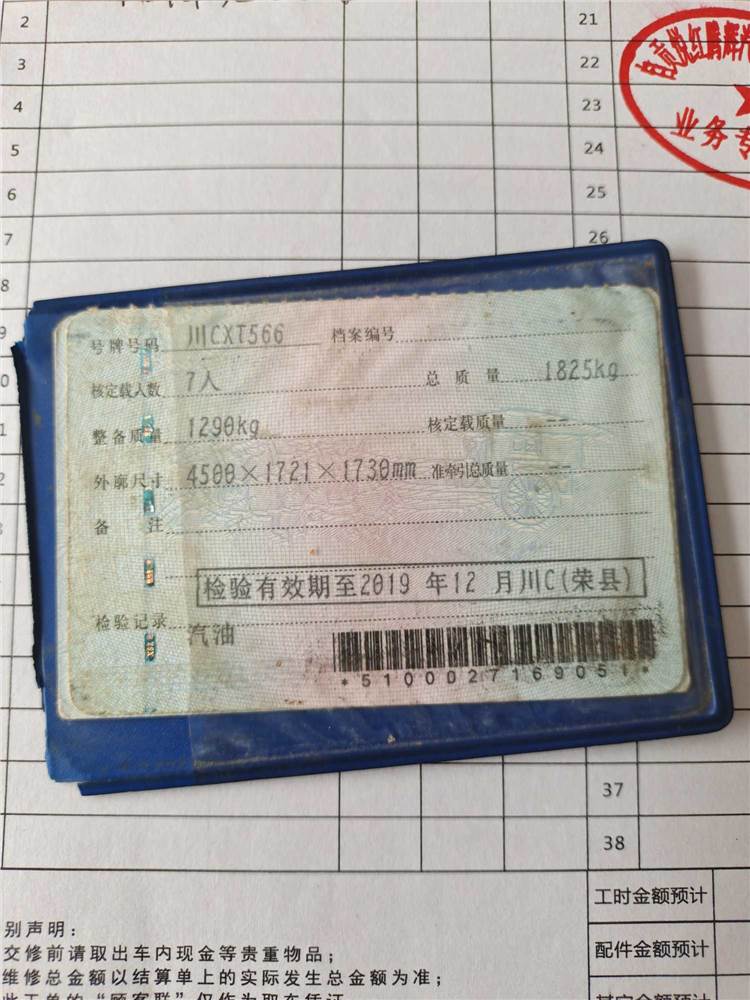 2
21
3
22
4
23
5
24
6
25
7
26
8
自贡悦红腾辉汽
业务专
号牌号码 川CXT566 档案编号
核定载人数 7人 总质量 1825kg
整备质量 1290kg 核定载质量 --
外廓尺寸 4500×1721×1730mm 准牵引总质量 --
备注
检验有效期至2019 年12 月川C(荣县)
检验记录
汽油
*5100027169051*
37
38
工时金额预计
别声明：
交修前请取出车内现金等贵重物品；
配件金额预计
维修总金额以结算单上的实际发生总金额为准；
此工单的“顾客联”仅作为取车凭证
其它金额预计